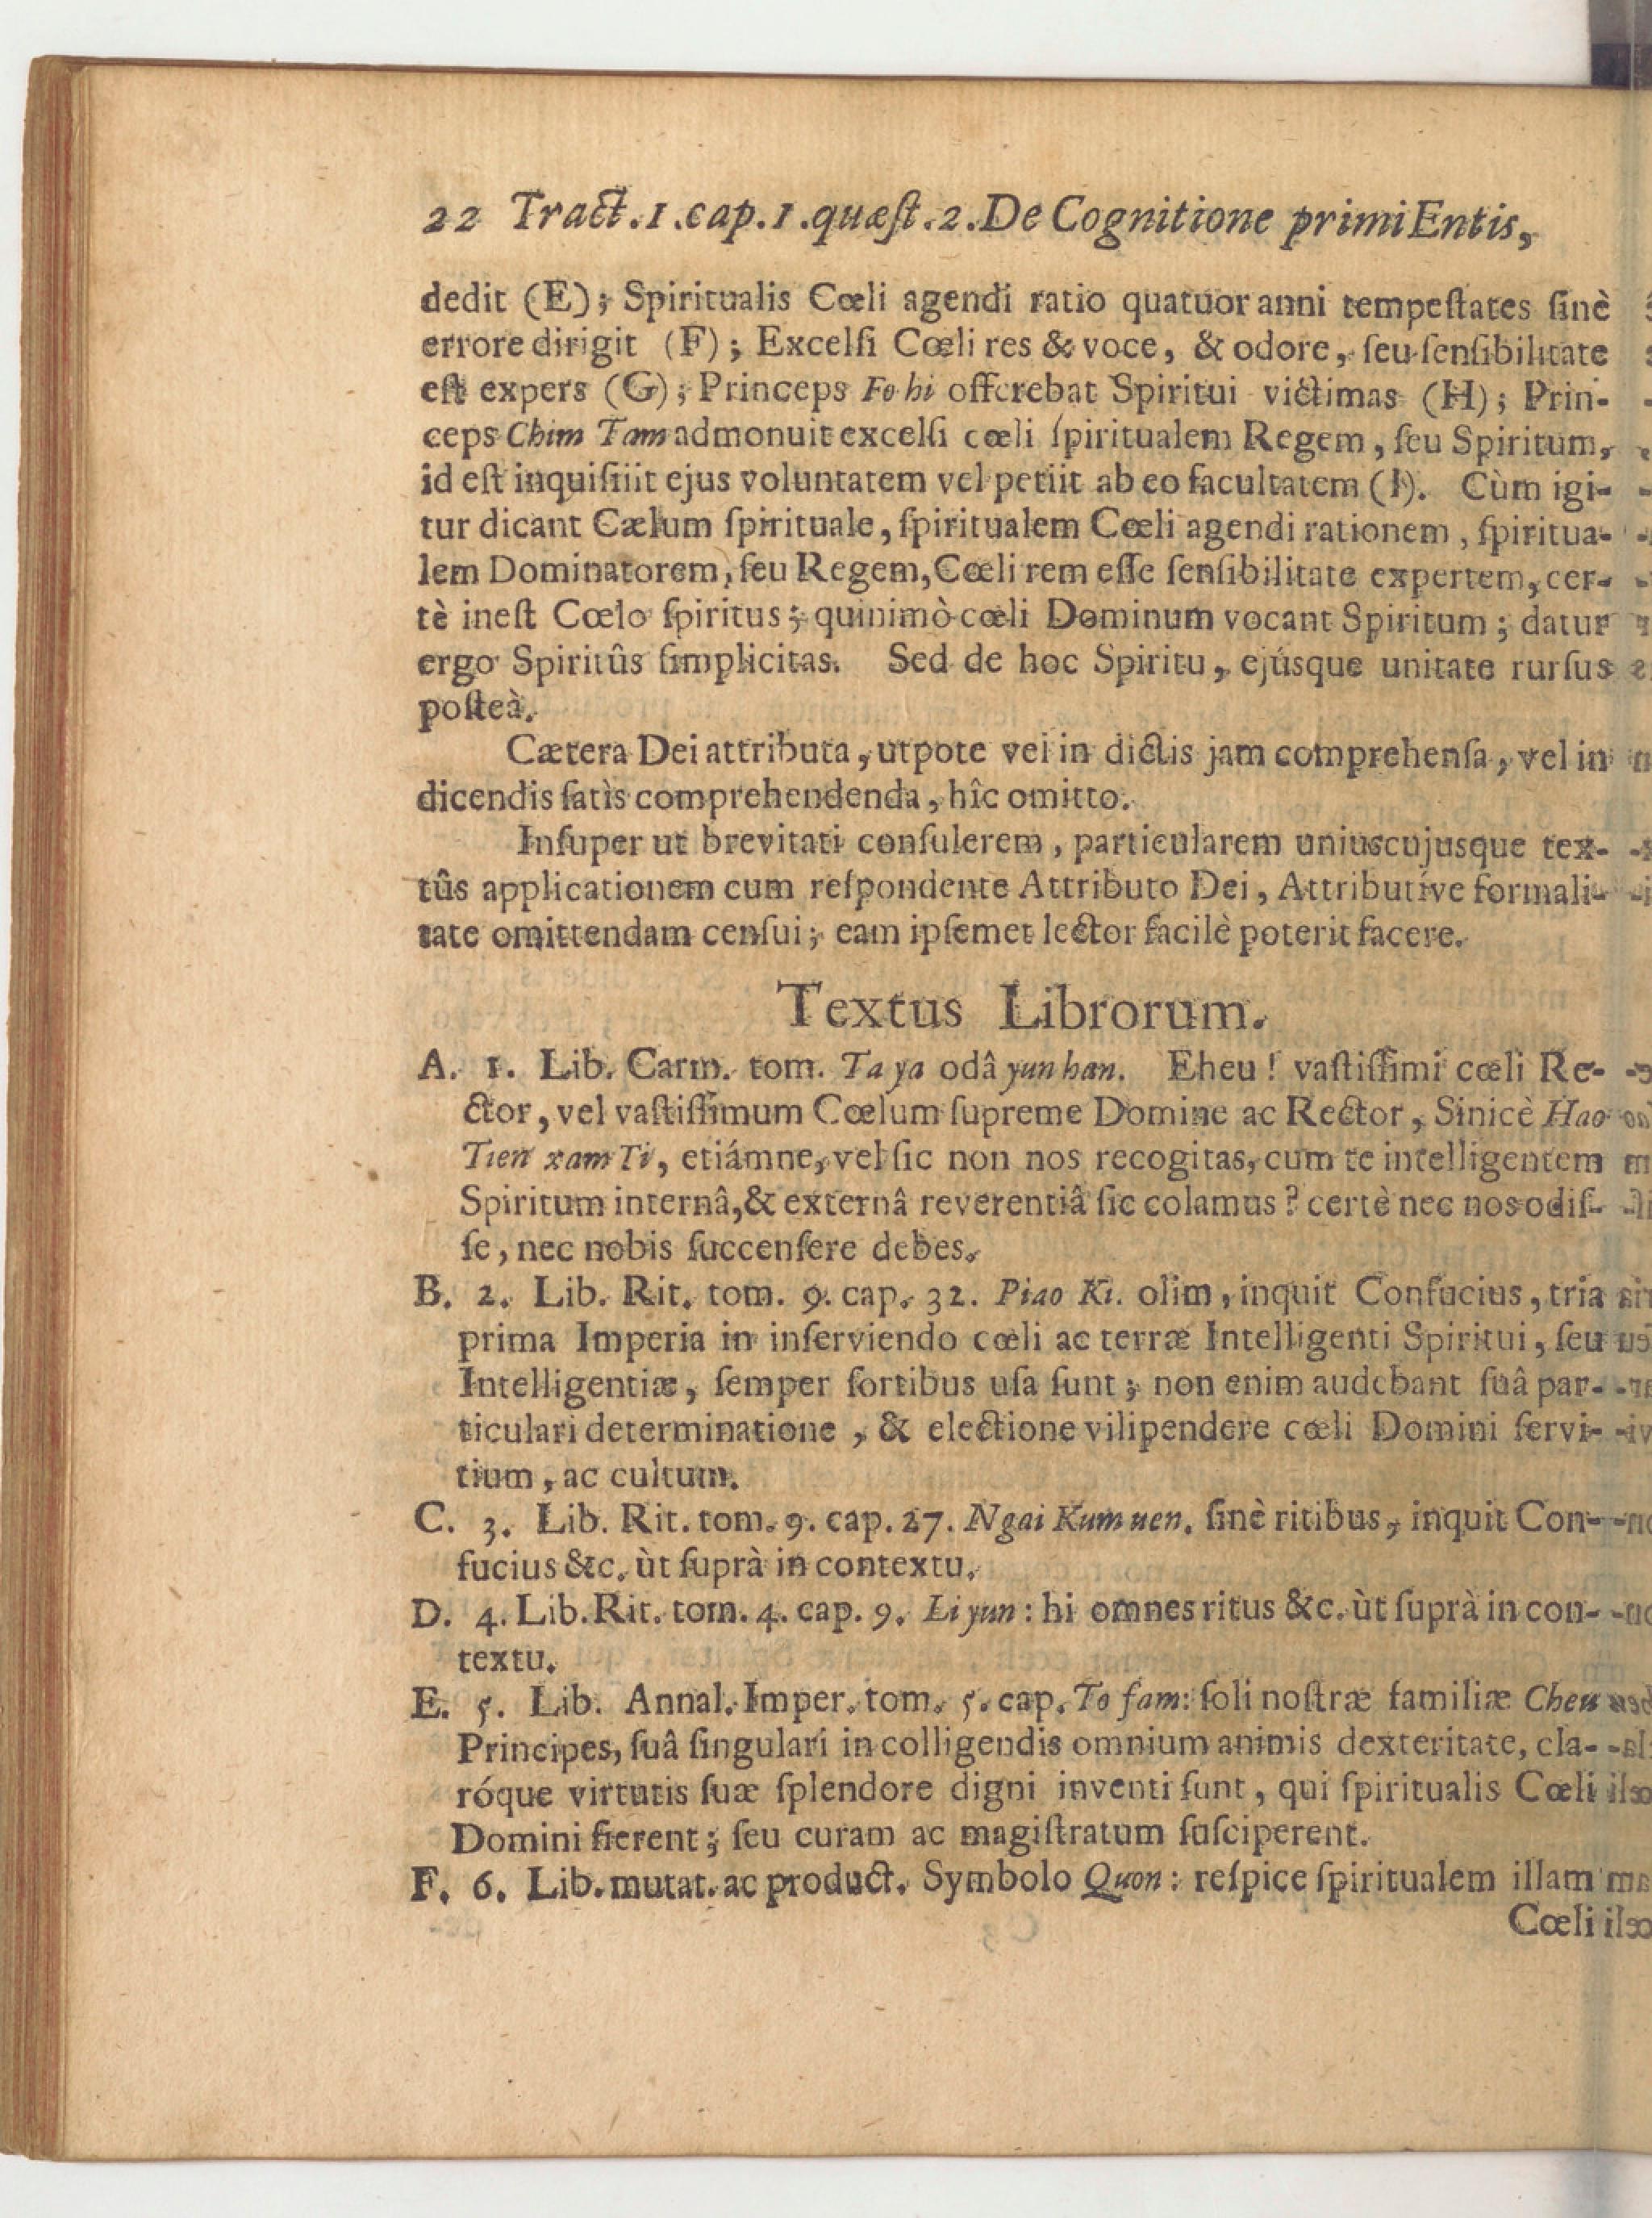 22 Tract.1.cap.1.quæſt.2.De Cognitione primi Entis,
dedit (E); Spiritualis Cœli agendi ratio quatuor anni tempeſtates ſinè
errore dirigit (F); Excelſi Cœli res & voce, & odore, ſeu ſenſibilitate
eſt expers (G); Princeps Fo hi offerebat Spiritui victimas (H); Prin-
ceps Chim Tam admonuit excelſi cœli ſpiritualem Regem, ſeu Spiritum,
id eſt inquiſiit ejus voluntatem vel petiit ab eo facultatem (I). Cùm igi-
tur dicant Cælum ſpirituale, ſpiritualem Cœli agendi rationem, ſpiritua-
lem Dominatorem, ſeu Regem, Cœli rem eſſe ſenſibilitate expertem, cer-
tè ineſt Cœlo ſpiritus; quinimò cœli Dominum vocant Spiritum; datur
ergo Spiritûs ſimplicitas. Sed de hoc Spiritu, ejúsque unitate rurſus
poſteà.
Cætera Dei attributa, utpote vel in dictis jam comprehenſa, vel in
dicendis ſatìs comprehendenda, hîc omitto.
Inſuper ut brevitati conſulerem, particularem uniuscujusque tex-
tûs applicationem cum reſpondente Attributo Dei, Attributíve formali-
tate omittendam cenſui; eam ipſemet lector facilè poterit facere.
Textus Librorum.
A. 1. Lib. Carm. tom. Ta ya odâ yun han. Eheu! vaſtiſſimi cœli Re-
ctor, vel vaſtiſſimum Cœlum ſupreme Domine ac Rector, Sinicè Hao
Tien xam Ti, etiámne, vel ſic non nos recogitas, cum te intelligentem
Spiritum internâ, & externâ reverentiâ ſic colamus? certè nec nos odiſ-
ſe, nec nobis ſuccenſere debes.
B. 2. Lib. Rit. tom. 9. cap. 32. Piao Ki. olim, inquit Confucius, tria
prima Imperia in inſerviendo cœli ac terræ Intelligenti Spiritui, ſeu
Intelligentiæ, ſemper ſortibus uſa ſunt; non enim audebant ſuâ par-
ticulari determinatione, & electione vilipendere cœli Domini ſervi-
tium, ac cultum.
C. 3. Lib. Rit. tom. 9. cap. 27. Ngai Kum uen. ſinè ritibus, inquit Con-
fucius &c. ùt ſuprà in contextu.
D. 4. Lib. Rit. tom. 4. cap. 9. Li yun: hi omnes ritus &c. ùt ſuprà in con-
textu.
E. 5. Lib. Annal. Imper. tom. 5. cap. To fam: ſoli noſtræ familiæ Cheu
Principes, ſuâ ſingulari in colligendis omnium animis dexteritate, cla-
róque virtutis ſuæ ſplendore digni inventi ſunt, qui ſpiritualis Cœli
Domini fierent; ſeu curam ac magiſtratum ſuſciperent.
F. 6. Lib. mutat. ac product. Symbolo Quon: reſpice ſpiritualem illam
Cœli